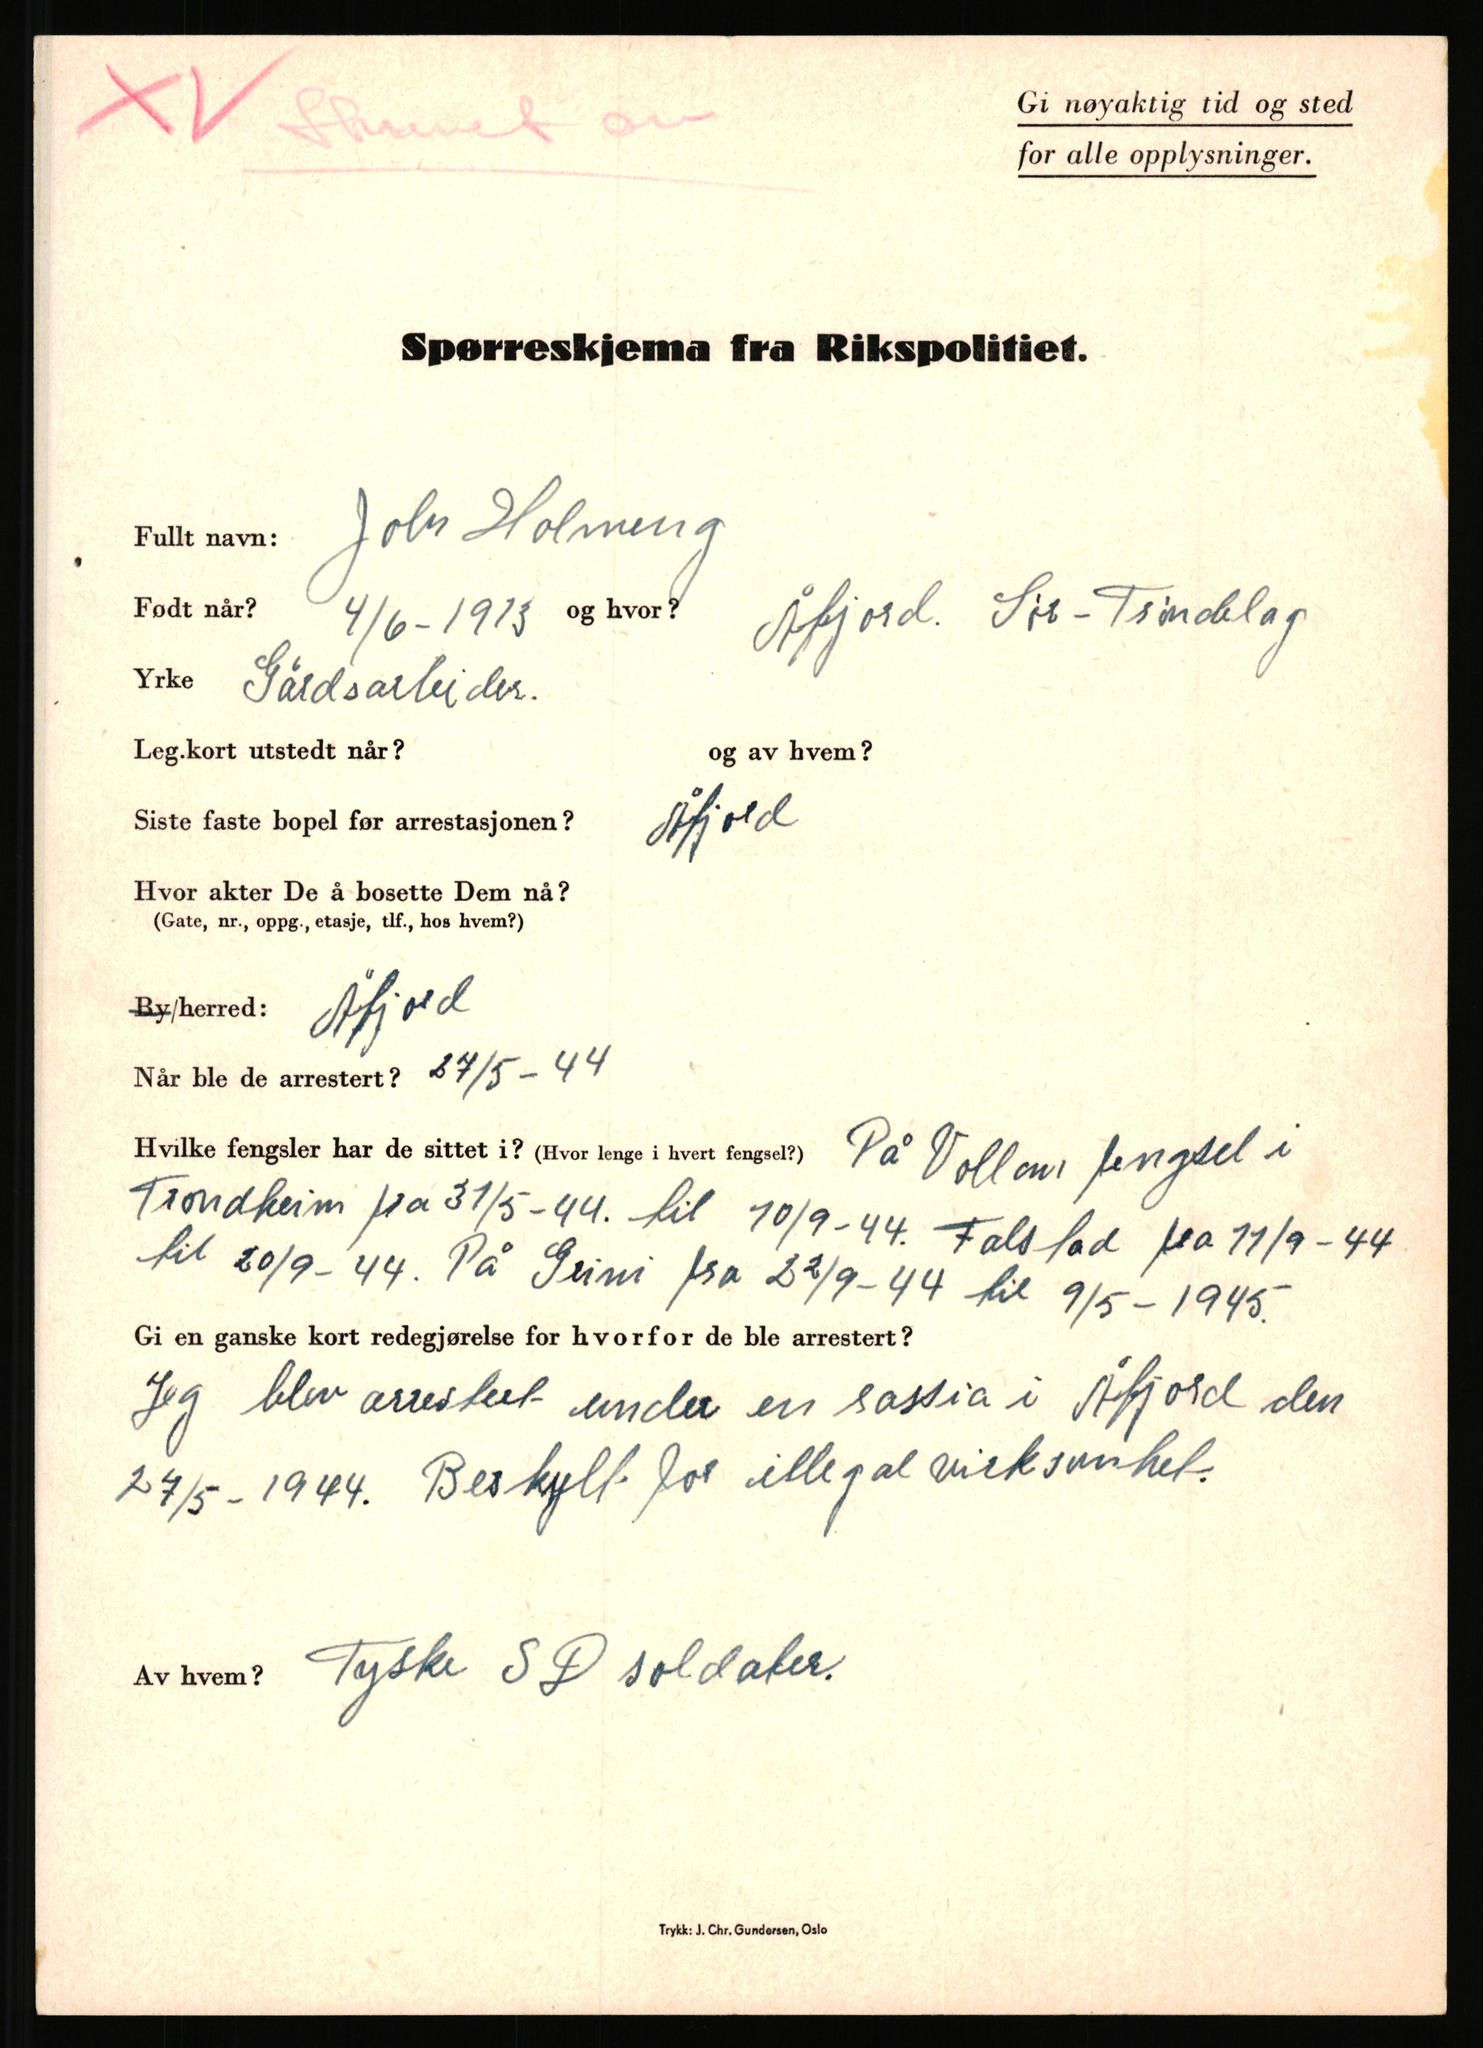 XV Skrevet om
Gi nøyaktig tid og sted
for alle opplysninger.
Spørreskjema fra Rikspolitiet.
Fullt navn: John Holmeng
Født når? 4/6-1913 og hvor? Åfjord. Sør-Trøndelag
Yrke Gårdsarbeider.
Leg.kort utstedt når? og av hvem?
Siste faste bopel før arrestasjonen? Åfjord
Hvor akter De å bosette Dem nå?
(Gate, nr., oppg., etasje, tlf., hos hvem?)
By/herred: Åfjord
Når ble de arrestert? 27/5-44
Hvilke fengsler har de sittet i? (Hvor lenge i hvert fengsel?) På Vollan fengsel i
Trondheim fra 31/5-44. til 10/9-44. Falstad fra 11/9-44
til 20/9-44. På Grini fra 22/9-44 til 9/5-1945.
Gi en ganske kort redegjørelse for hvorfor de ble arrestert?
Jeg blev arrestert under en rassia i Åfjord den
27/5-1944. Beskylt for illegal virksomhet.
Av hvem? Tyske SD soldater.
Trykk: J. Chr. Gundersen, Oslo